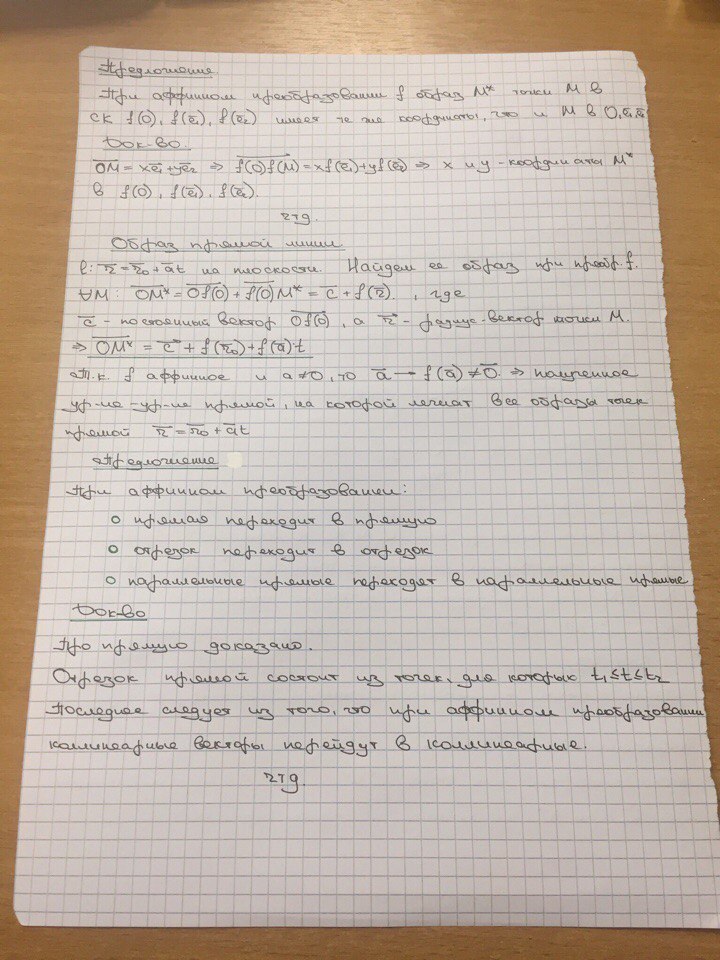 Предложение
При аффинном преобразовании f образ M* точки M в
СК f(O), f(e̅₁), f(e̅₂) имеет те же координаты, что и M в O, e̅₁, e̅₂
Док-во
O̅M̅ = xe̅₁+ye̅₂ ⇒ f(O)f(M) = xf(e̅₁)+yf(e̅₂) ⇒ x и y - координаты M*
в f(O), f(e̅₁), f(e̅₂).
чтд.
Образ прямой линии
l: r̅ = r̅₀ + a̅t на плоскости. Найдем ее образ при преобр. f.
∀M: O̅M̅* = O̅f̅(̅O̅)̅ + f̅(̅O̅)̅M̅* = c̅ + f(r̅), где
c̅ - постоянный вектор O̅f̅(̅O̅)̅, а r̅ - радиус-вектор точки M.
⇒ O̅M̅* = c̅ + f(r̅₀) + f(a̅)t
Т.к. f аффинное и a≠0, то a̅ → f(a̅) ≠ 0̅ ⇒ полученное
ур-ие - ур-ие прямой, на которой лежат все образы точек
прямой r̅ = r̅₀ + a̅t
Предложение
При аффинном преобразовании:
○ прямая переходит в прямую
○ отрезок переходит в отрезок
○ параллельные прямые переходят в параллельные прямые
Док-во
Про прямую доказано.
Отрезок прямой состоит из точек, для которых t₁≤t≤t₂
Последнее следует из того, что при аффинном преобразовании
коллинеарные векторы перейдут в коллинеарные.
чтд.